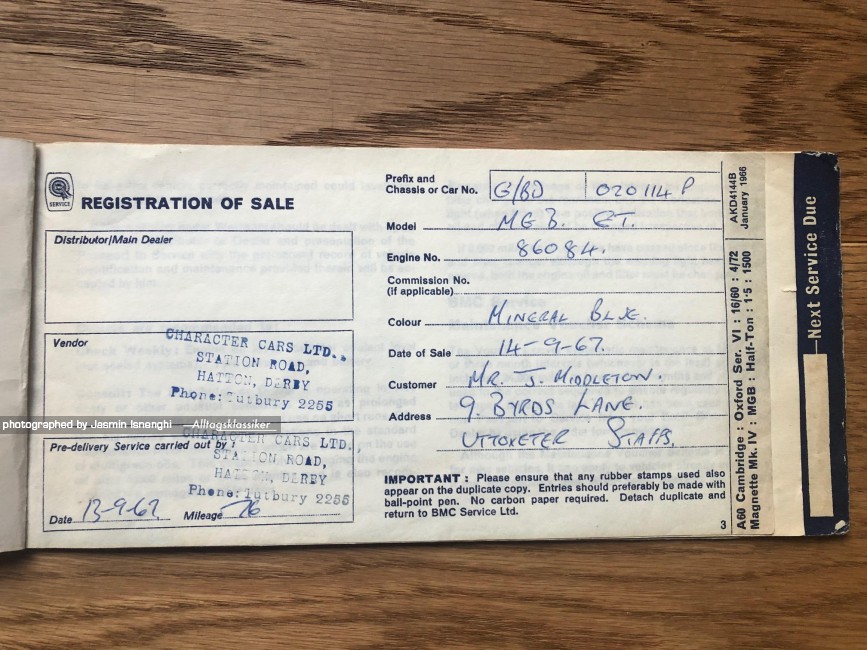 SERVICE
REGISTRATION OF SALE
Distributor/Main Dealer
Vendor
CHARACTER CARS LTD.
STATION ROAD,
HATTON, DERBY
Phone: Tutbury 2255
Pre-delivery Service carried out by:
CHARACTER CARS LTD.
STATION ROAD,
HATTON, DERBY
Phone: Tutbury 2255
Date 13-9-67. Mileage 76
Prefix and
Chassis or Car No. G/BD 020114 P
Model MGB. GT.
Engine No. 86084.
Commission No.
(if applicable)
Colour MINERAL BLUE.
Date of Sale 14-9-67.
Customer MR. J. MIDDLETON.
Address 9. BYRDS LANE.
UTTOXETER STAFFS.
IMPORTANT : Please ensure that any rubber stamps used also
appear on the duplicate copy. Entries should preferably be made with
ball-point pen. No carbon paper required. Detach duplicate and
return to BMC Service Ltd.
3
AKD4144B
January 1966
A60 Cambridge : Oxford Ser. VI : 16/60 : 4/72
Magnette Mk. IV : MGB : Half-Ton : 1·5 : 1500
Next Service Due
photographed by Jasmin Isnenghi — Alltagsklassiker